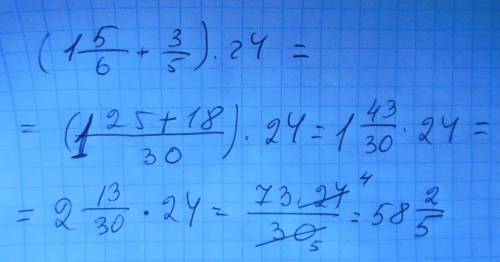 (1 5/6 + 3/5) · 24 =
= (1 25+18/30) · 24 = 1 43/30 · 24 =
= 2 13/30 · 24 = 73·24 4/30 5 = 58 2/5